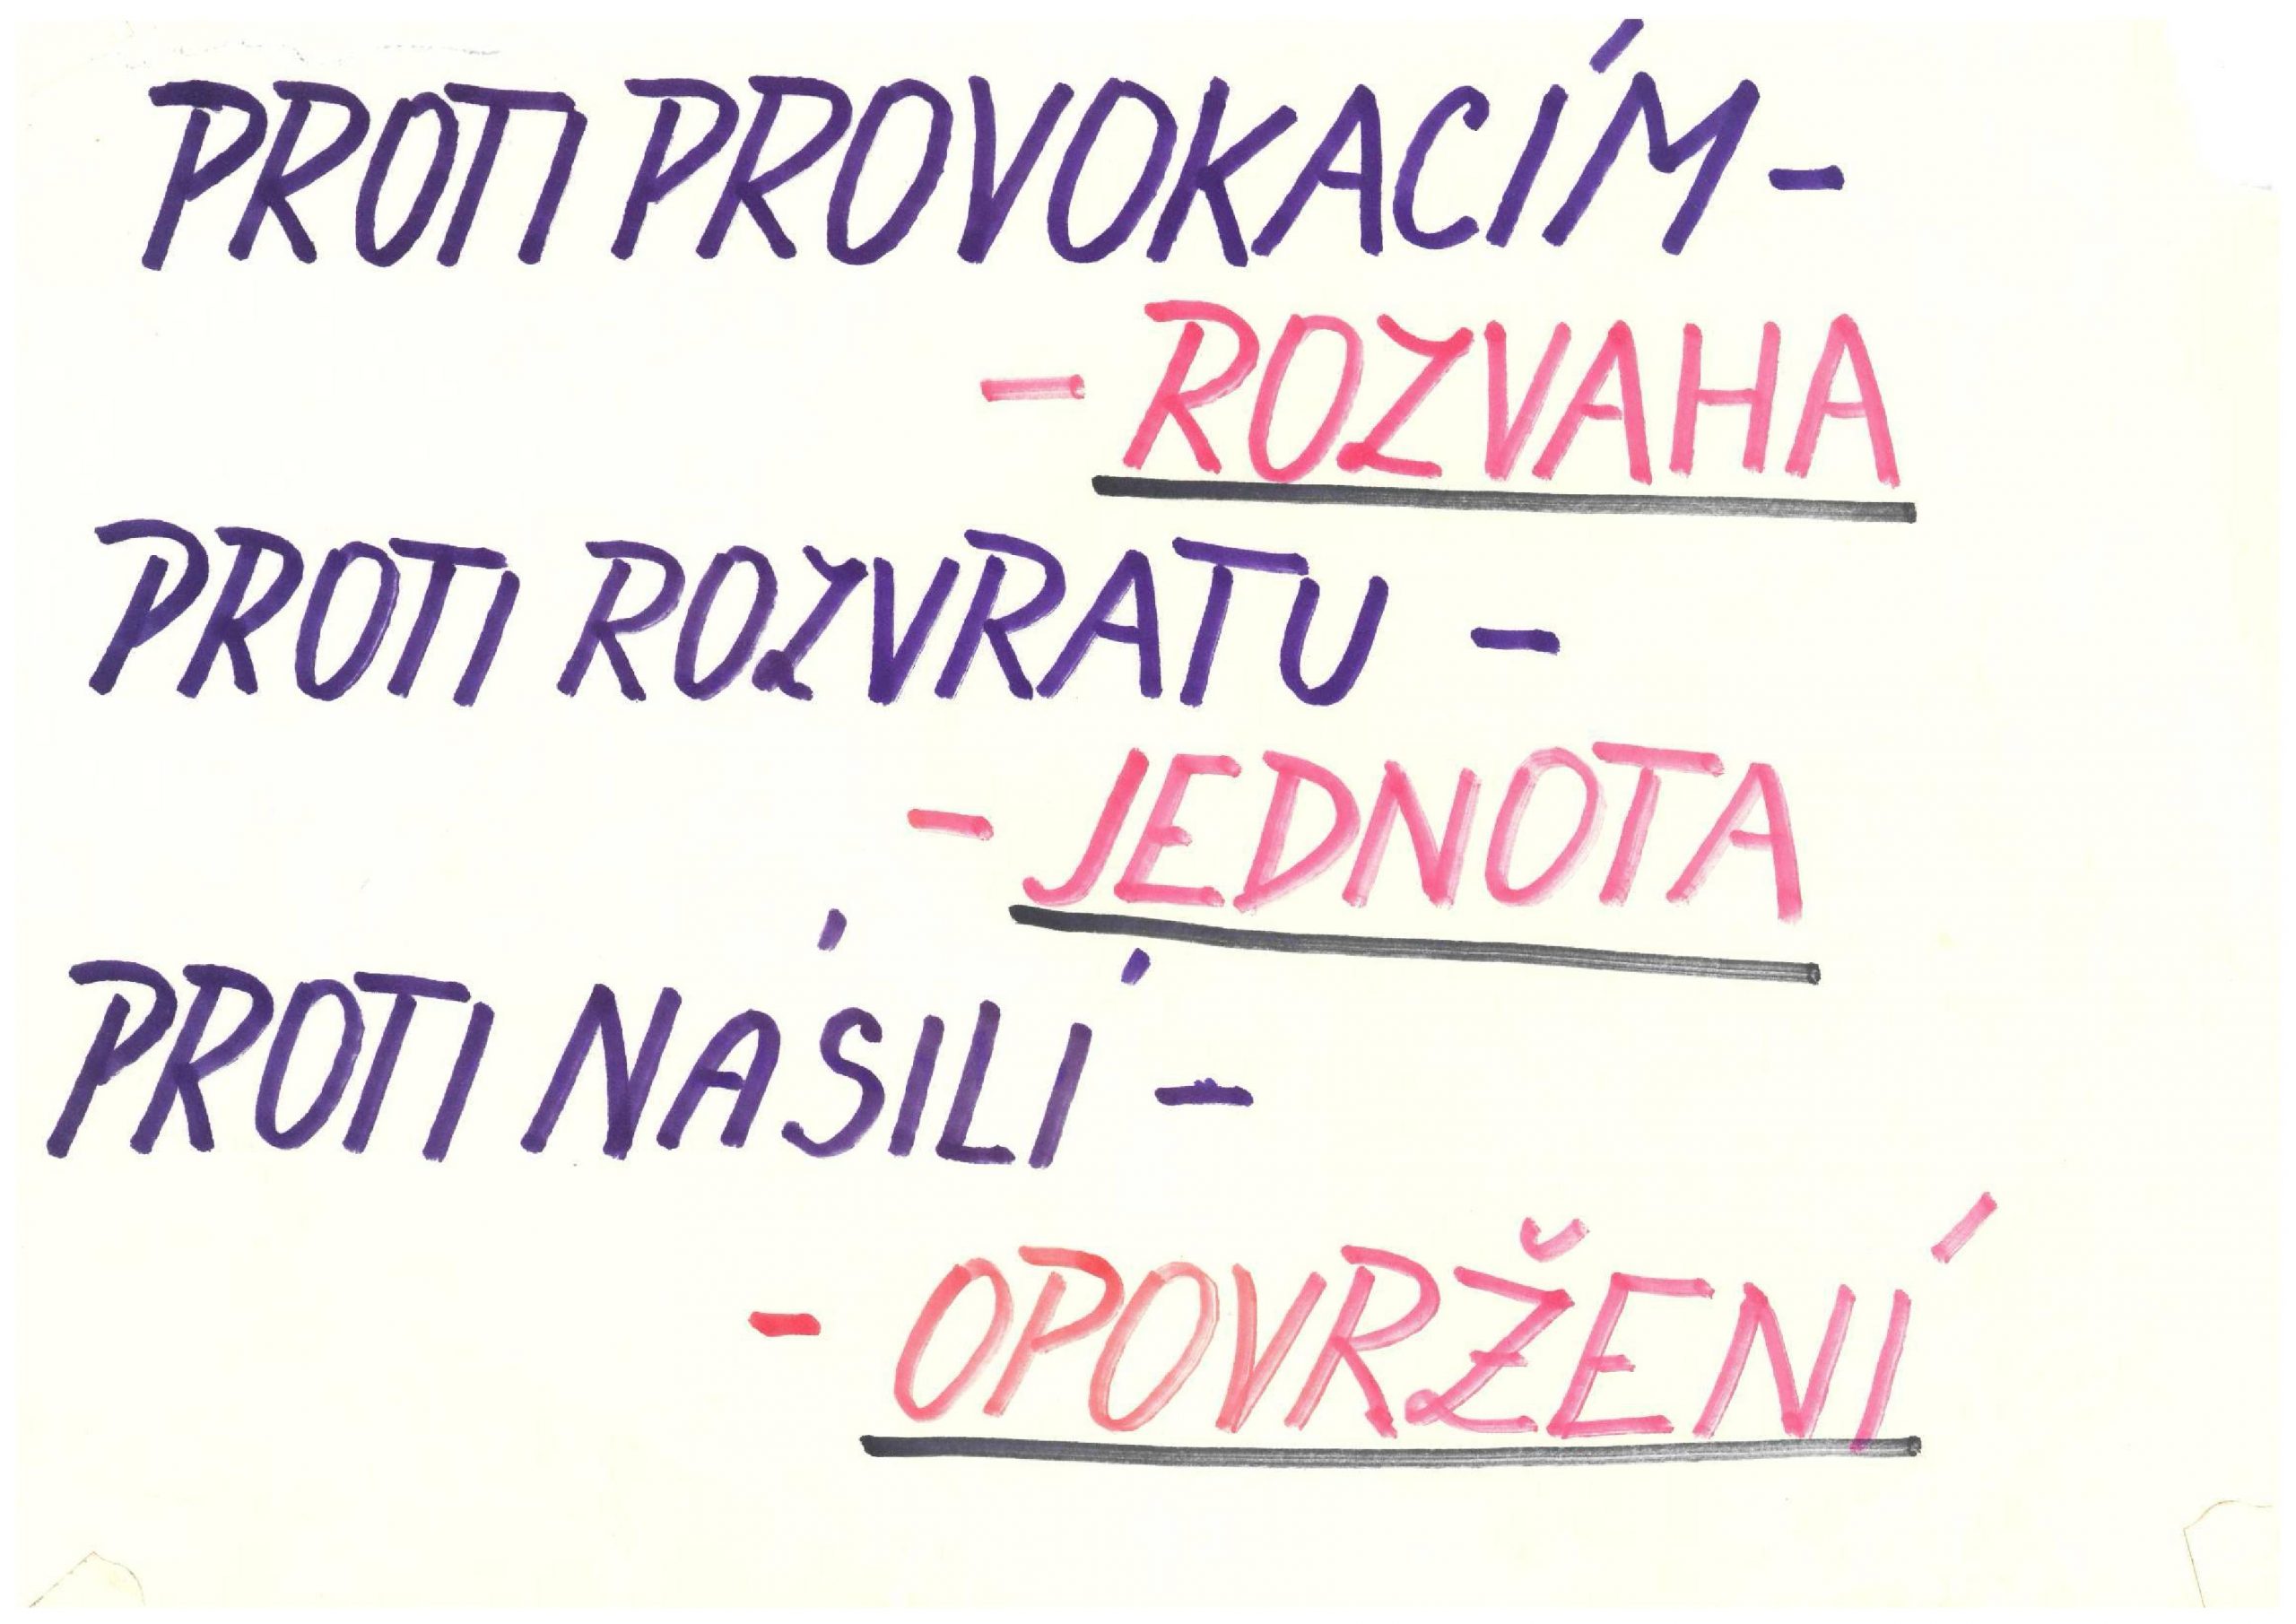 PROTI PROVOKACÍM -
- ROZVAHA
PROTI ROZVRATU -
- JEDNOTA
PROTI NÁSILÍ -
- OPOVRŽENÍ